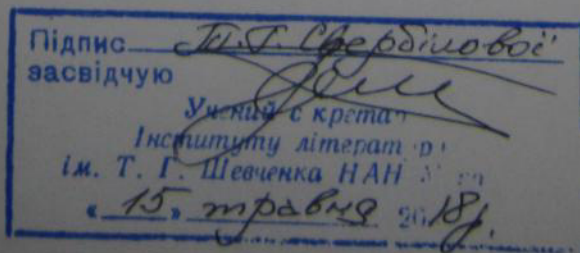 Підпис Т.Г. Свербілової
засвідчую
Учений с кретар
Інституту літератур
ім. Т. Г. Шевченка НАН
« 15 » травня 2018р.